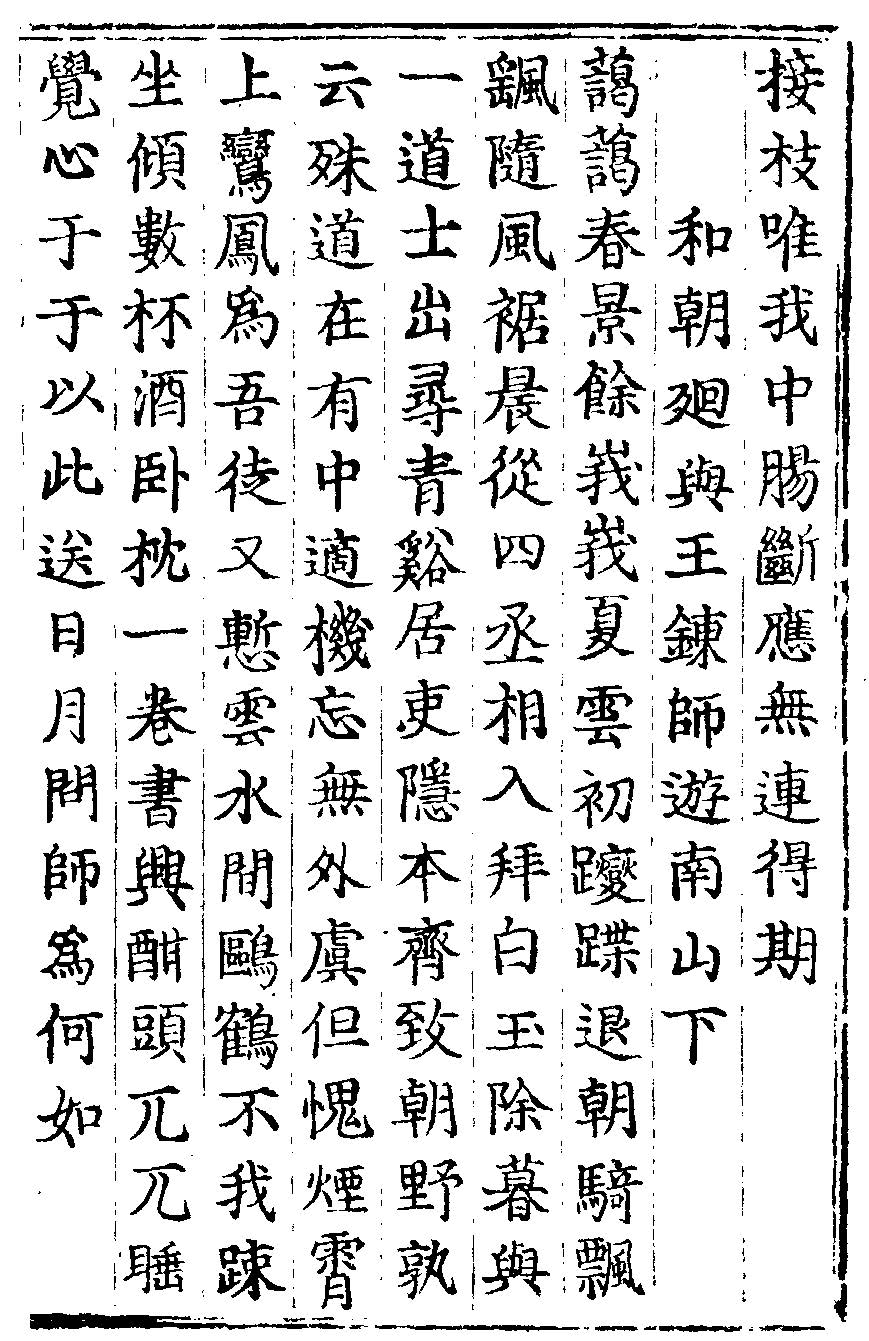 接枝唯我中腸斷應無連得期
和朝廻與王鍊師遊南山下
藹藹春景餘峩峩夏雲初躞蹀退朝騎飄
颻隨風裾晨從四丞相入拜白玉除暮與
一道士出尋青谿居吏隱本齊致朝野孰
云殊道在有中適機忘無外虞但愧煙霄
上鸞鳳爲吾徒又慙雲水間鷗鶴不我踈
坐傾數杯酒臥枕一卷書興酣頭兀兀睡
覺心于于以此送日月問師爲何如